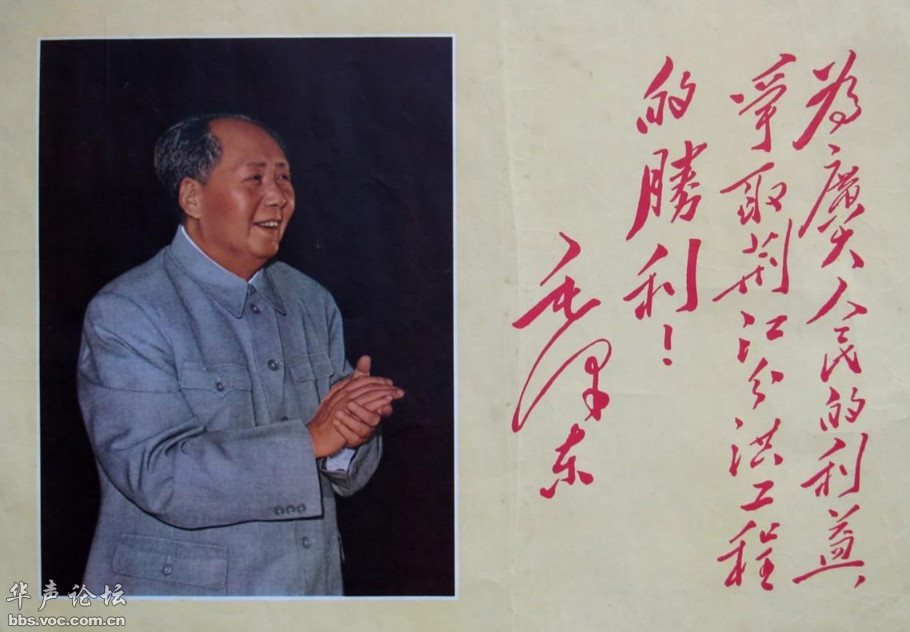 為廣大人民的利益
爭取荆江分洪工程
的勝利！
毛澤东
华声论坛
bbs.voc.com.cn